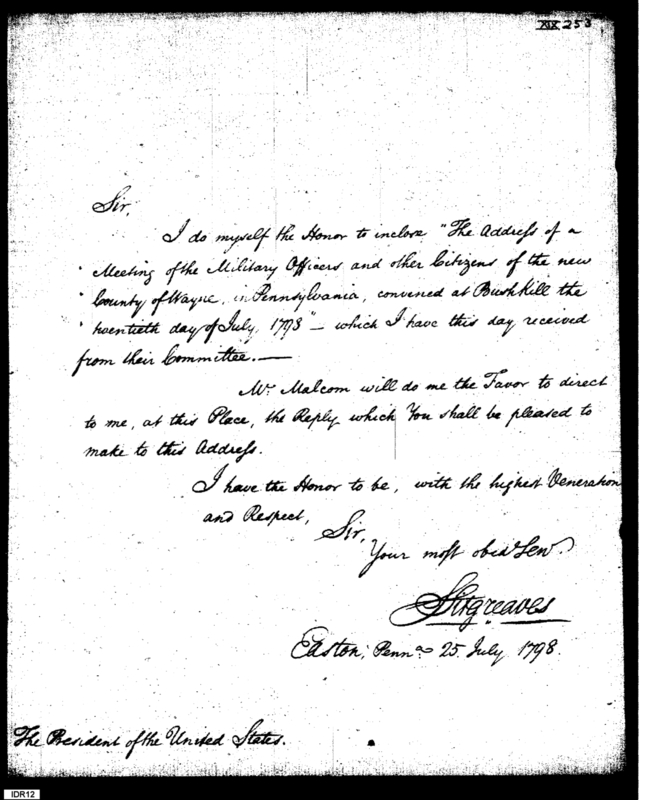 XIX 253
Sir,
I do myself the Honor to inclose "The Address of a
" Meeting of the Military Officers and other Citizens of the new
" County of Wayne, in Pennsylvania, convened at Bushkill the
" twentieth day of July, 1798" — which I have this day received
from their Committee. —
Mr. Malcom will do me the Favor to direct
to me, at this Place, the Reply which You shall be pleased to
make to this Address.
I have the Honor to be, with the highest Veneration
and Respect,
Sir,
Your most obed Serv.
SSitgreaves
Easton, Penna. 25. July 1798.
The President of the United States.
IDR12